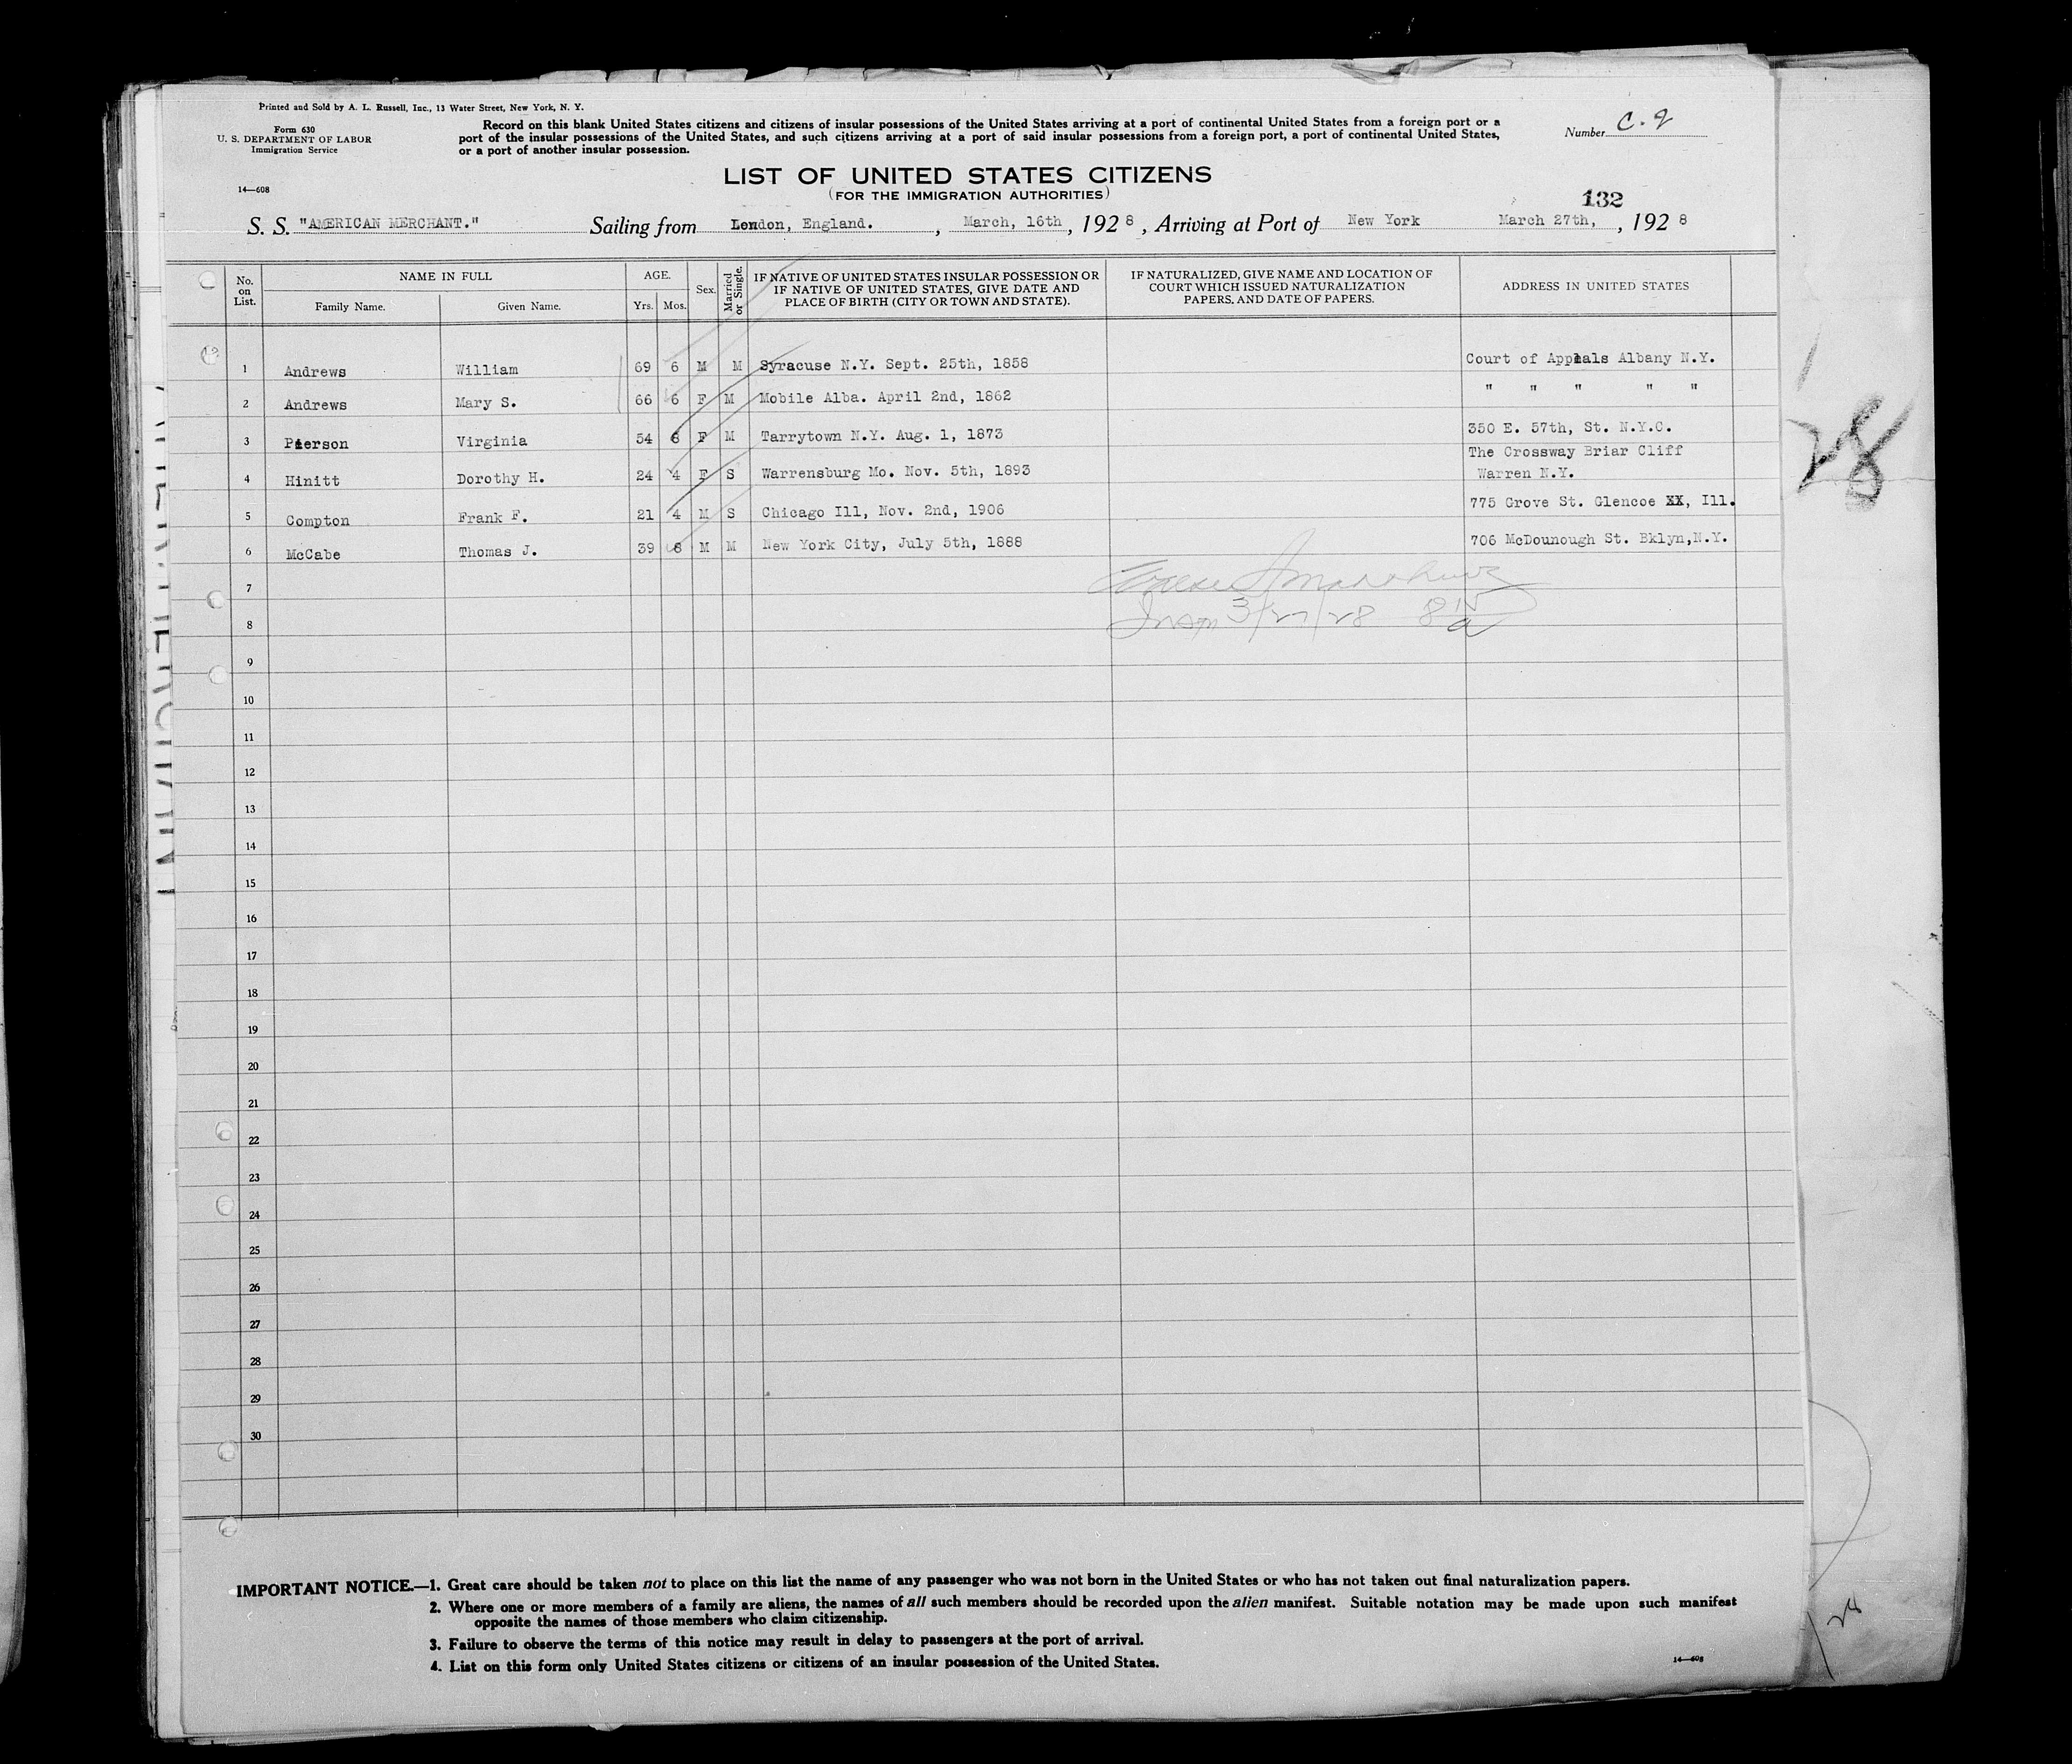 Printed and Sold by A. L. Russell, Inc., 13 Water Street, New York, N. Y.
Form 630
U. S. DEPARTMENT OF LABOR
Immigration Service
14—608
Record on this blank United States citizens and citizens of insular possessions of the United States arriving at a port of continental United States from a foreign port or a
port of the insular possessions of the United States, and such citizens arriving at a port of said insular possessions from a foreign port, a port of continental United States,
or a port of another insular possession.
Number C. 2
LIST OF UNITED STATES CITIZENS
(FOR THE IMMIGRATION AUTHORITIES)
132
S. S. "AMERICAN MERCHANT." Sailing from London, England. , March, 16th , 192 8 , Arriving at Port of New York March 27th, , 192 8
No. on List. NAME IN FULL Family Name. Given Name. AGE. Yrs. Mos. Sex. Married or Single. IF NATIVE OF UNITED STATES INSULAR POSSESSION OR IF NATIVE OF UNITED STATES, GIVE DATE AND PLACE OF BIRTH (CITY OR TOWN AND STATE). IF NATURALIZED, GIVE NAME AND LOCATION OF COURT WHICH ISSUED NATURALIZATION PAPERS, AND DATE OF PAPERS. ADDRESS IN UNITED STATES
1 Andrews William 69 6 M M Syracuse N.Y. Sept. 25th, 1858 Court of Appeals Albany N.Y.
2 Andrews Mary S. 66 6 F M Mobile Alba. April 2nd, 1862 " " " " "
3 Pierson Virginia 54 6 F M Tarrytown N.Y. Aug. 1, 1873 350 E. 57th, St. N.Y.C.
4 Hinitt Dorothy H. 24 4 F S Warrensburg Mo. Nov. 5th, 1893 The Crossway Briar Cliff
Warren N.Y.
5 Compton Frank F. 21 4 M S Chicago Ill, Nov. 2nd, 1906 775 Grove St. Glencoe XX, Ill.
6 McCabe Thomas J. 39 8 M M New York City, July 5th, 1888 706 McDounough St. Bklyn,N.Y.
7
8 3/27/28
9
10
11
12
13
14
15
16
17
18
19
20
21
22
23
24
25
26
27
28
29
30
28
IMPORTANT NOTICE.—1. Great care should be taken not to place on this list the name of any passenger who was not born in the United States or who has not taken out final naturalization papers.
2. Where one or more members of a family are aliens, the names of all such members should be recorded upon the alien manifest. Suitable notation may be made upon such manifest
opposite the names of those members who claim citizenship.
3. Failure to observe the terms of this notice may result in delay to passengers at the port of arrival.
4. List on this form only United States citizens or citizens of an insular possession of the United States.
14—608